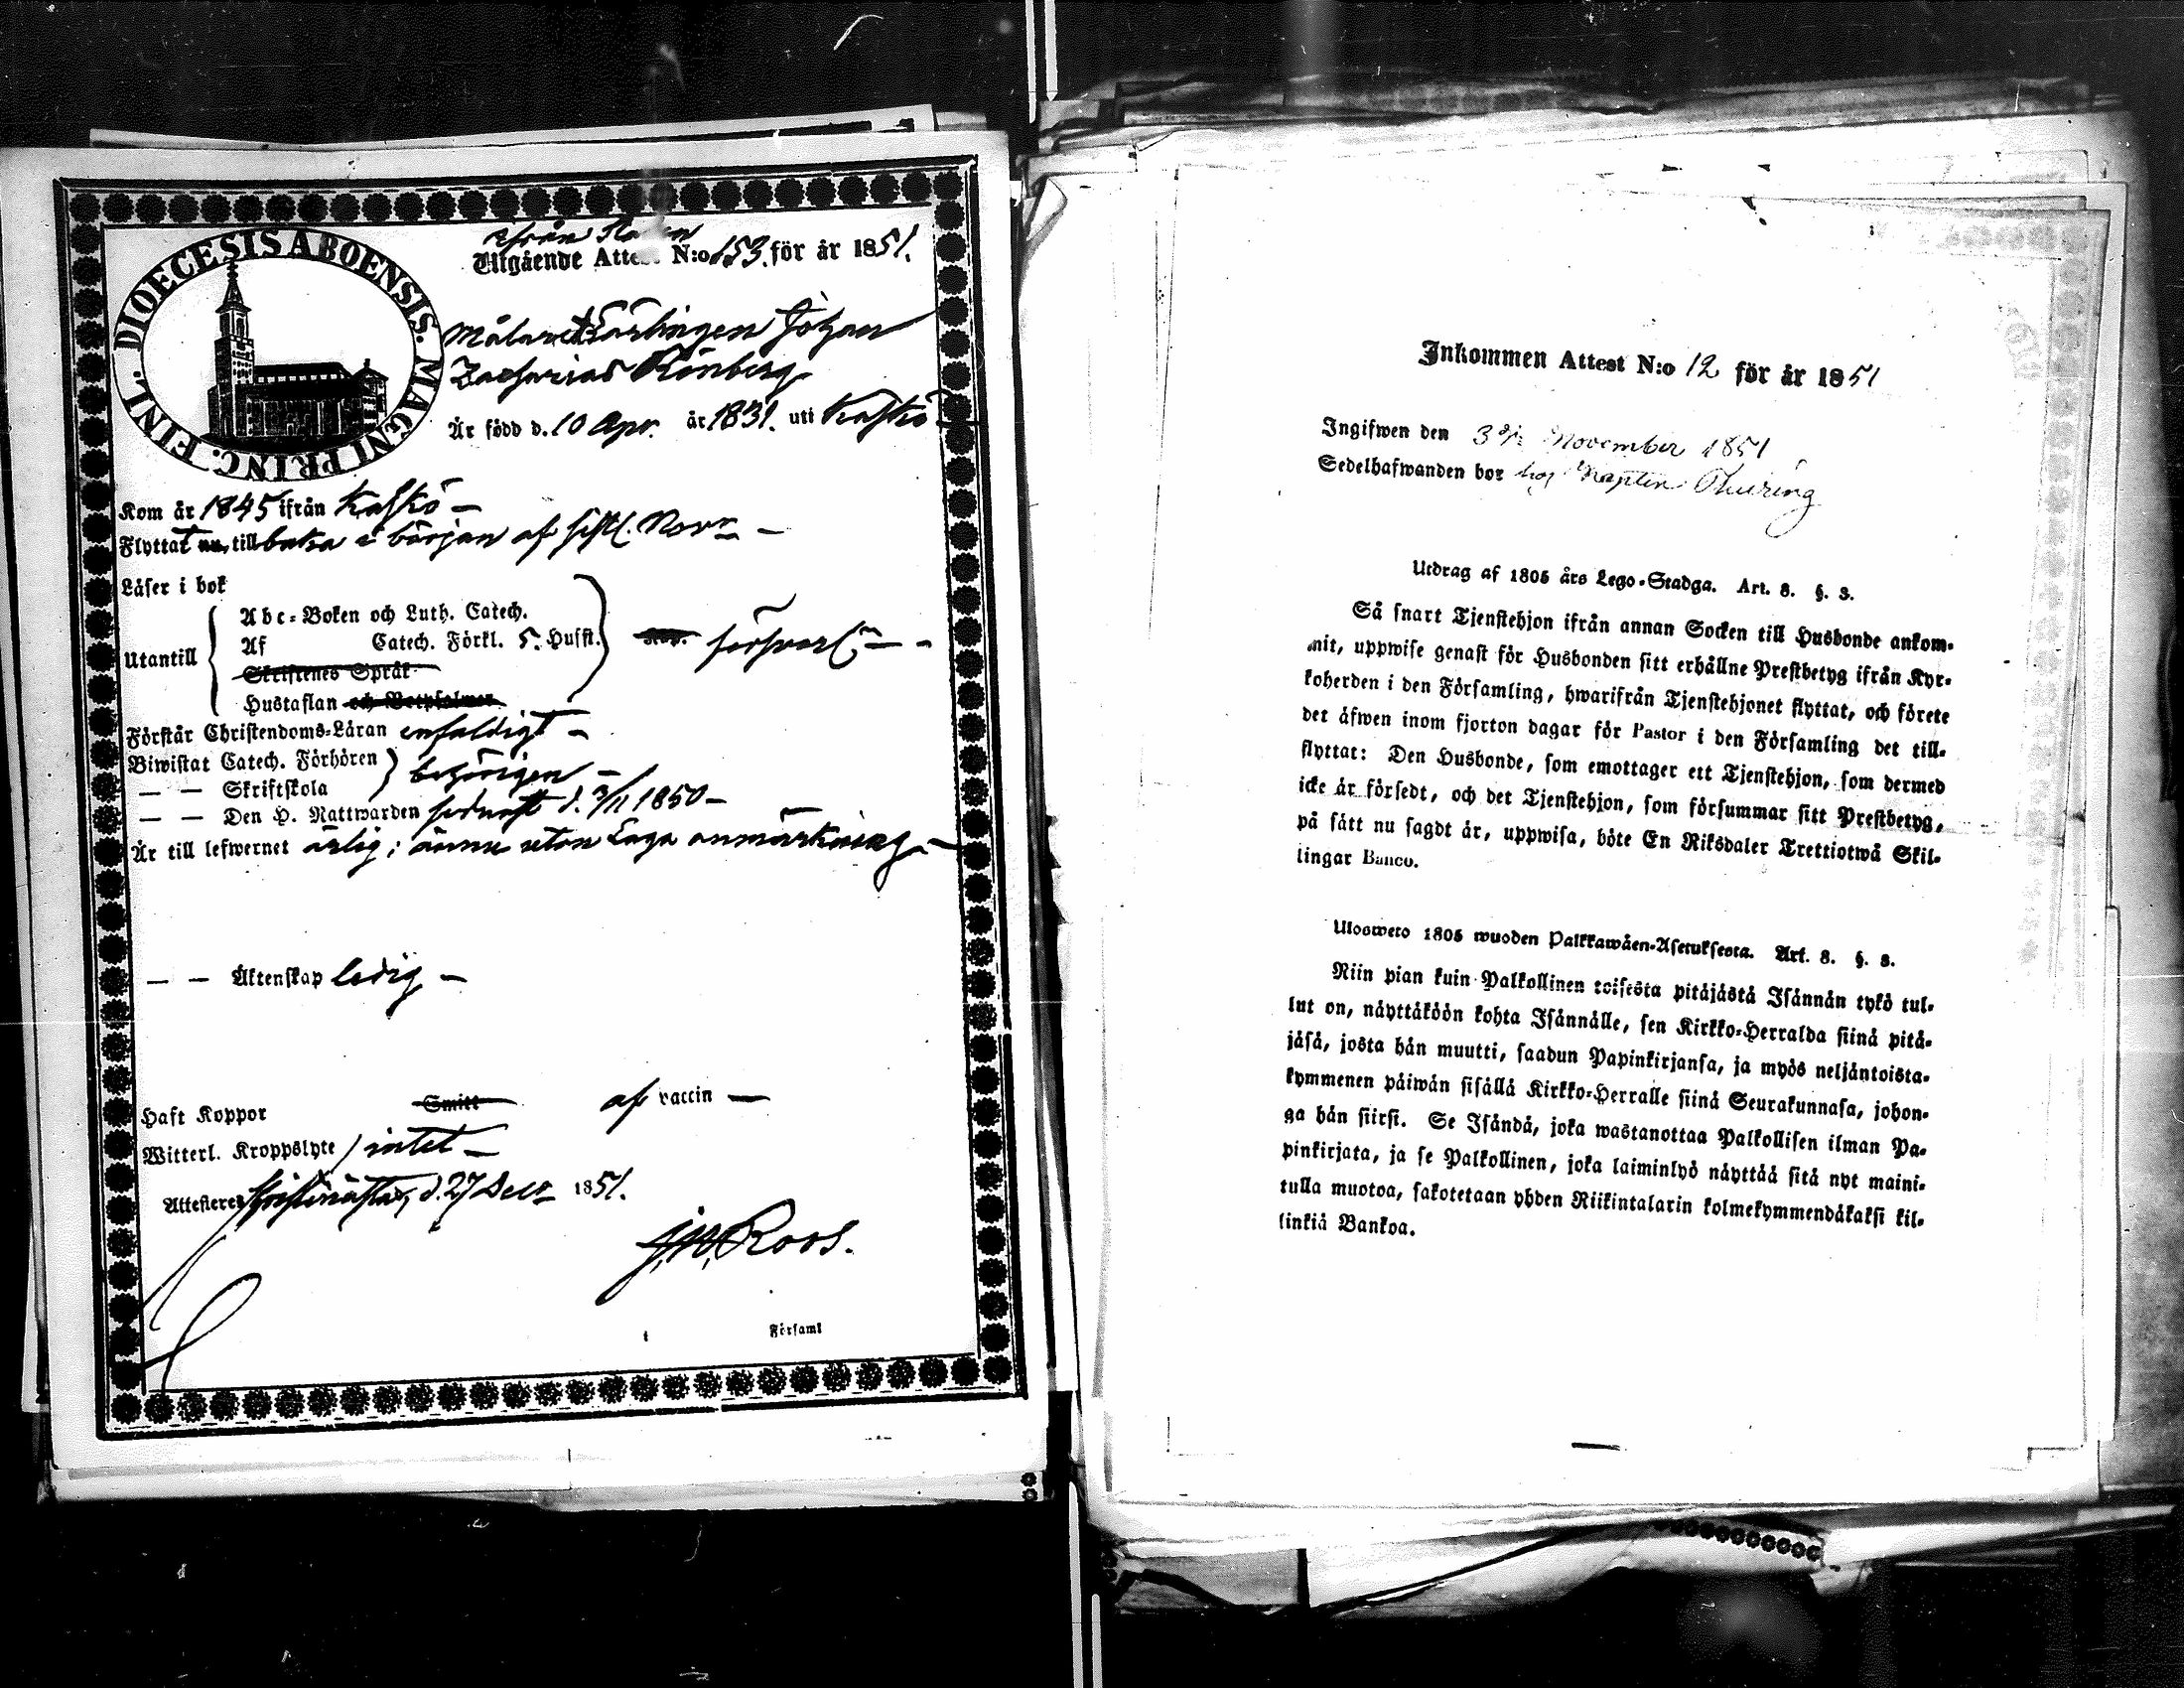 DIOECESIS ABOENSIS. MAGNI PRINC. FINL.
ifrån Staden
Utgående Attest N:o 153. för år 1851.
Målare Lärlingen Johan
Zacharias Rönberg
Är född d. 10 Apr. år 1831. uti Kaskö
Kom år 1845 ifrån Kaskö —
Flyttat nu till baka i början af sistl. Novr —
Läser i bok
Utantill
Abc-Boken och Luth. Catech.
Af Catech. Förkl. 5. Husst.
Skriftenes Språk
Hustaflan och Botpsalmer
försvarl. —
Förstår Christendoms-Läran enfaldigt —
Biwistat Catech. Förhören
— — Skriftskola
behörigen —
— — Den H. Nattwarden senast d. 3/11 1850 —
Är till lefwernet ärlig; ännu utan Laga anmärkning —
— — Äktenskap ledig —
Haft Koppor Smitt af vaccin —
Witterl. Kroppslyte intet —
Attesteres Christinæstad, d. 27 Decr 1851.
J.W. Roos.
i Församl
Inkommen Attest N:o 12 för år 1851
Ingifwen den November 1851
Sedelhafwanden bor hos Kapten Thuring
Utdrag af 1805 års Lego-Stadga. Art. 8. §. 3.
Så snart Tjenstehjon ifrån annan Socken till Husbonde ankom-
mit, uppwise genast för Husbonden sitt erhållne Prestbetyg ifrån Kyr-
koherden i den Församling, hwarifrån Tjenstehjonet flyttat, och förete
det äfwen inom fjorton dagar för Pastor i den Församling det till-
flyttat: Den Husbonde, som emottager ett Tjenstehjon, som dermed
icke är försedt, och det Tjenstehjon, som försummar sitt Prestbetyg,
på sätt nu sagdt är, uppwisa, böte En Riksdaler Trettiotwå Skil-
lingar Banco.
Uloswето 1805 wuoden Palkkawäen-Asetuksesta. Art. 8. §. 3.
Niin pian kuin Palkollinen toisesta pitäjästä Isännän tykö tul-
lut on, näyttäköön kohta Isännälle, sen Kirkko-Herralda siinä pitä-
jäsä, josta hän muutti, saadun Papinkirjansa, ja myös neljäntoista-
kymmenen päiwän sisällä Kirkko-Herralle siinä Seurakunnasa, johon-
ga hän siirsi. Se Isändä, joka wastanottaa Palkollisen ilman Pa-
pinkirjata, ja se Palkollinen, joka laiminlyö näyttää sitä nyt maini-
tulla muotoa, sakotetaan yhden Riikintalarin kolmekymmendäkaksi kil-
linkiä Bankoa.